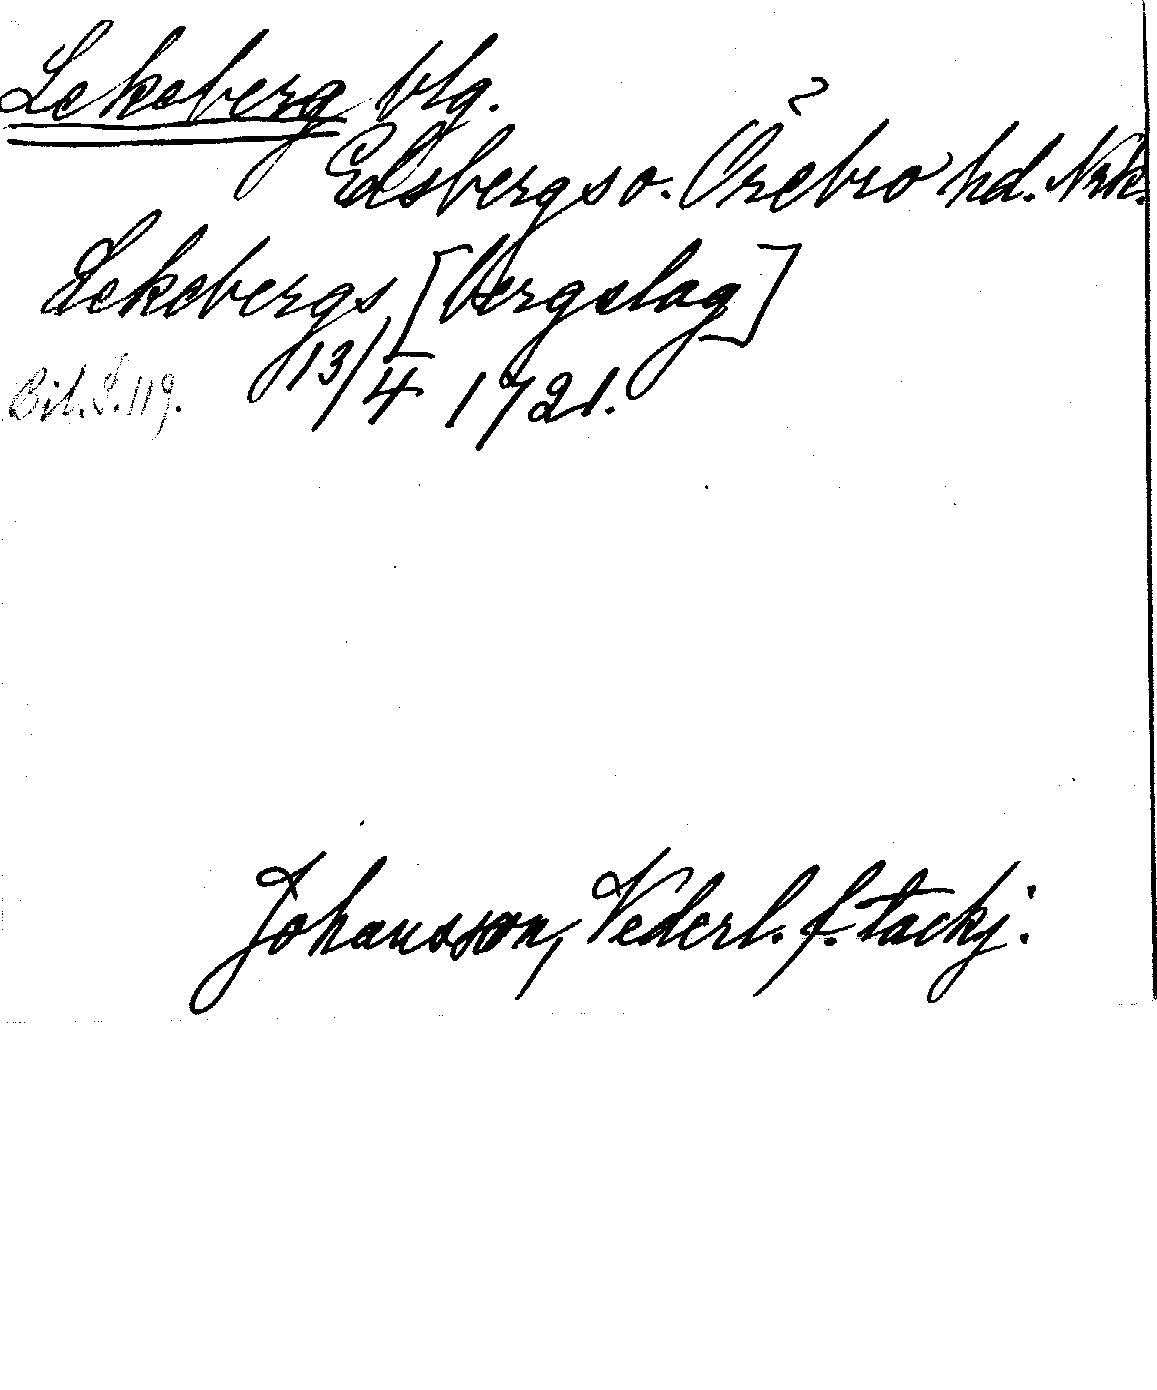 Lekeberg blg.
Edsbergs o. Örebro hd. Nrk.
Lekebergs [bergslag]
13/4 1721.
Bil. S. 119.
Johansson, Vederl. f. tackj.